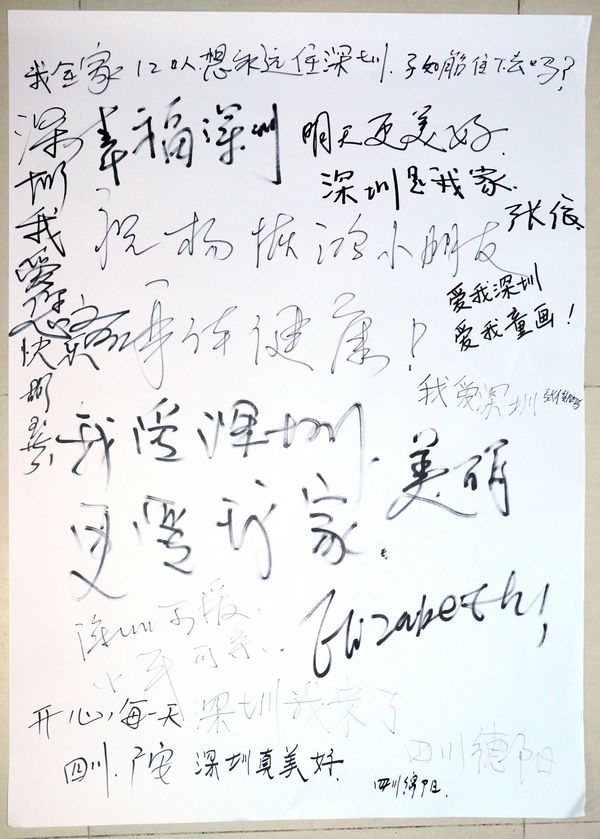 我全家12口人想永远住深圳.
幸福深圳
明天更美好.
深圳是我家.
张俊
深圳我爱你
祝杨恢鸿小朋友
身体健康!
爱我深圳
爱我童画!
我爱深圳
我爱深圳.
更爱我家.
美丽
Elizabeth!
开心每一天
深圳我来了
四川.广安
深圳真美好.
四川德阳
四川绵阳.